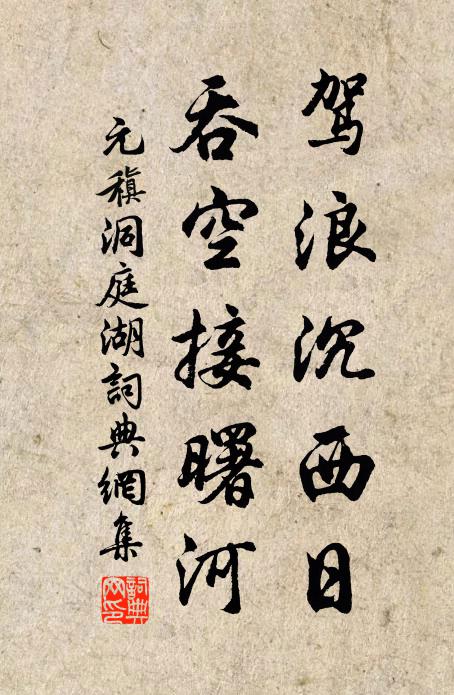 驾浪沉西日
吞空接曙河
元稹洞庭湖詞典網集
詞典网印